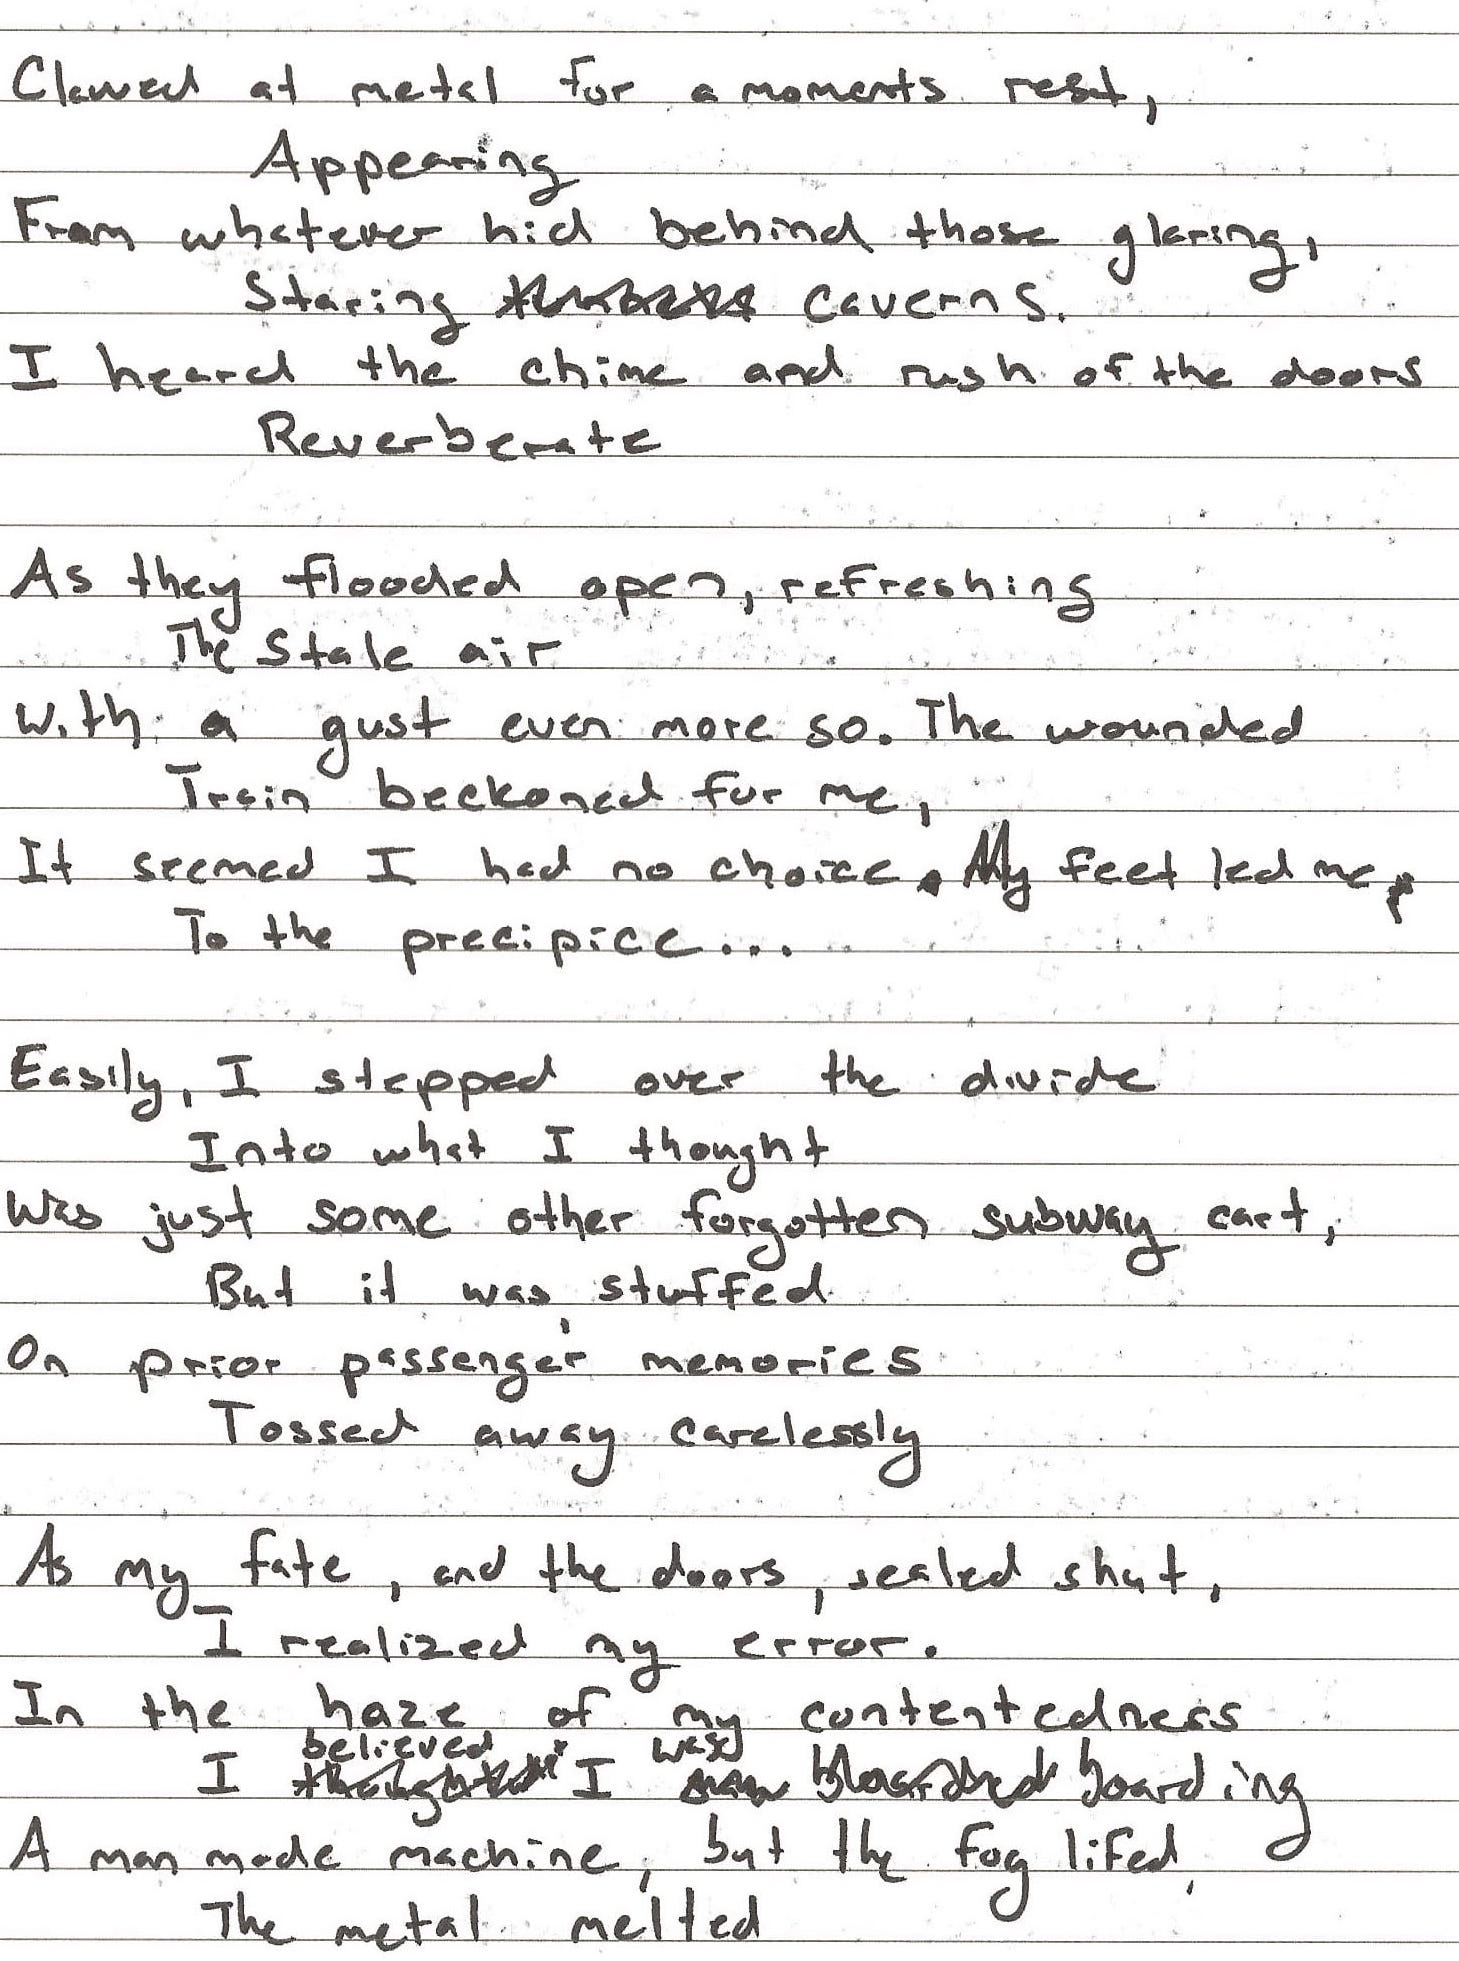 Clawed at metal for a moments rest,
Appearing
From whatever hid behind those glaring,
Staring caverns.
I heard the chime and rush of the doors
Reverberate
As they flooded open, refreshing
The Stale air
With a gust even more so. The wounded
Train beckoned for me,
It seemed I had no choice. My feet led me,
To the precipice...
Easily, I stepped over the divide
Into what I thought
Was just some other forgotten subway cart,
But it was stuffed
On prior passenger memories
Tossed away carelessly
As my fate, and the doors, sealed shut,
I realized my error.
In the haze of my contentedness
I believed I was boarding
A man made machine, but the fog lifed,
The metal melted